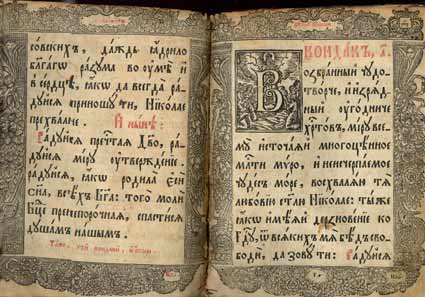 даждь
блгагѡ разума во оумѣ и
в сердцѣ, ꙗкѡ да всегда ра-
дуйсѧ приношу ти, Николае
прехвалне.
И нынѣ:
Радуйсѧ пречтаѧ Дво, ра-
дуйсѧ миру оутверждение,
радуйсѧ, ꙗкѡ родила єси
Сна, всѣхъ Бга: того моли
Бце пренепорочнаѧ, спастисѧ
душамъ нашымъ.
КОНДАК,
Возбранный чудо-
творче, и изрѧд-
ный оугодниче
хртовъ, миру все-
му источаѧй многоцѣнное
мати муро, и неисчерпаемое
чудесъ море, восхвалѧю тѧ
любовию стли Николае: ты же
ꙗкѡ имѣѧй дерзновение ко
Гду, ѿ всѧкихъ мѧ бѣдъ сво-
боди, да зову ти: Радуйсѧ